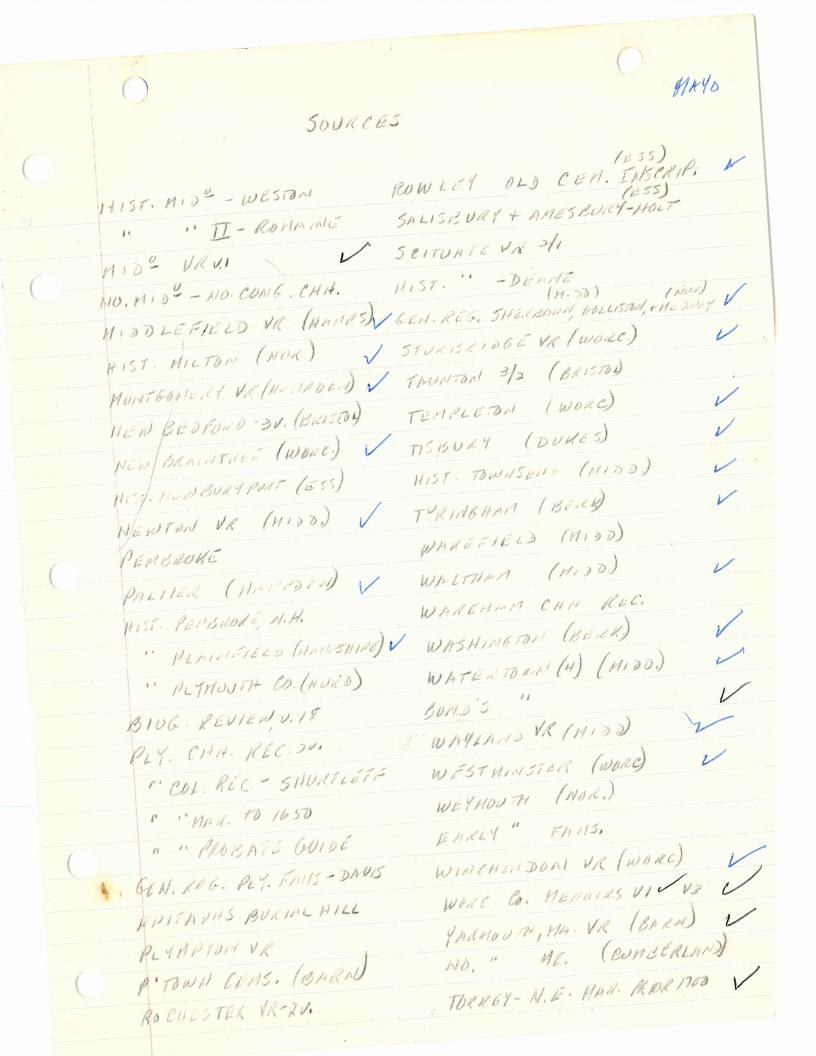 MAYO
SOURCES
HIST. MIDᴼ - WESTON
" " II - ROMAINE
MIDᴼ VR V.1 ✓
NO. MIDᴼ - NO. CONG. CHH.
MIDDLEFIELD VR (HAMPS) ✓
HIST. MILTON (NOR.) ✓
MONTGOMERY VR (HAMPDEN) ✓
NEW BEDFORD - 3V. (BRISTOL)
NEW BRAINTREE (WORC.) ✓
HIST. NEWBURYPORT (ESS)
NEWTON VR (MIDD.) ✓
PEMBROKE
PALMER (HAMPDEN) ✓
HIST. PEMBROKE, N.H.
" PLAINFIELD (HAMPSHIRE) ✓
" PLYMOUTH CO. (HURD)
BIOG. REVIEW, V.18
PLY. CHH. REC. 2V.
" COL. REC. - SHURTLEFF
" " MAR. TO 1650
" " PROBATE GUIDE
GEN. REG. PLY. FAMS - DAVIS
EPITAPHS BURIAL HILL
PLYMPTON VR
P'TOWN CEMS. (BARN)
ROCHESTER VR-2V.
(ESS)
ROWLEY OLD CEM. INSCRIP. ✓
(ESS)
SALISBURY + AMESBURY-HOLT
SCITUATE VR 2/1
HIST. " - DEANE
(MIDD) (NOR)
GEN. REG. SHERBORN, HOLLISTON, + MEDWAY ✓
STURBRIDGE VR (WORC.) ✓
TAUNTON 3/2 (BRISTOL)
TEMPLETON (WORC) ✓
TISBURY (DUKES) ✓
HIST. TOWNSEND (MIDD.) ✓
TYRINGHAM (BERK) ✓
WAKEFIELD (MIDD)
WALTHAM (MIDD) ✓
WAREHAM CHH REC.
WASHINGTON (BERK) ✓
WATERTOWN (4) (MIDD.) ✓
BOND'S " ✓
WAYLAND VR (MIDD) ✓
WESTMINSTER (WORC) ✓
WEYMOUTH (NOR.)
EARLY " FAMS.
WINCHENDON VR (WORC) ✓
WORC. CO. MEMOIRS V1 ✓ V3 ✓
YARMOUTH, MA. VR (BARN) ✓
NO. " ME. (CUMBERLAND)
TORREY - N.E. MAR. PRIOR 1700 ✓